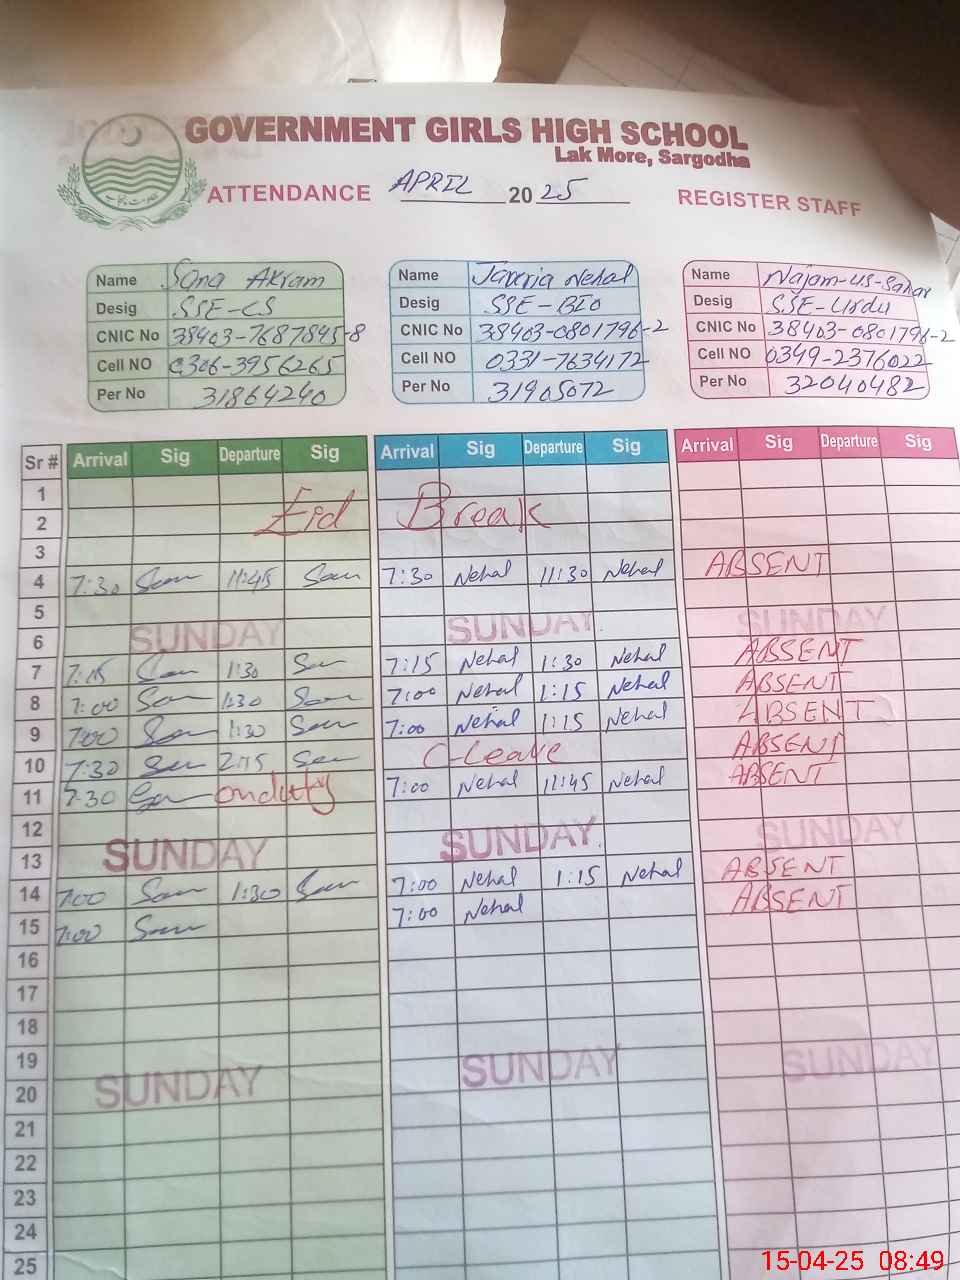 GOVERNMENT GIRLS HIGH SCHOOL
Lak More, Sargodha
ATTENDANCE APRIL 2025 REGISTER STAFF
Name Sana Akram Name Javeria Nehal Name Najam-us-Sahar
Desig SSE-CS Desig SSE-BIO Desig SSE-Urdu
CNIC No 38403-7687845-8 CNIC No 38403-0801796-2 CNIC No 38403-0801796-2
Cell NO 0306-3956265 Cell NO 0331-7634172 Cell NO 0349-2376022
Per No 31864240 Per No 31905072 Per No 32040482
Sr # Arrival Sig Departure Sig Arrival Sig Departure Sig Arrival Sig Departure Sig
1
2 Eid Break
3
4 7:30 11:45 7:30 Nehal 11:30 Nehal ABSENT
5
6 SUNDAY SUNDAY SUNDAY
7 7:15 1:30 7:15 Nehal 1:30 Nehal ABSENT
8 7:00 1:30 7:00 Nehal 1:15 Nehal ABSENT
9 7:00 1:30 7:00 Nehal 1:15 Nehal ABSENT
10 7:30 2:15 C-leave ABSENT
11 7:30 onduty 7:00 Nehal 11:45 Nehal ABSENT
12
13 SUNDAY SUNDAY SUNDAY
14 7:00 1:30 7:00 Nehal 1:15 Nehal ABSENT
15 7:00 7:00 Nehal ABSENT
16
17
18
19
20 SUNDAY SUNDAY SUNDAY
21
22
23
24
25
15-04-25 08:49